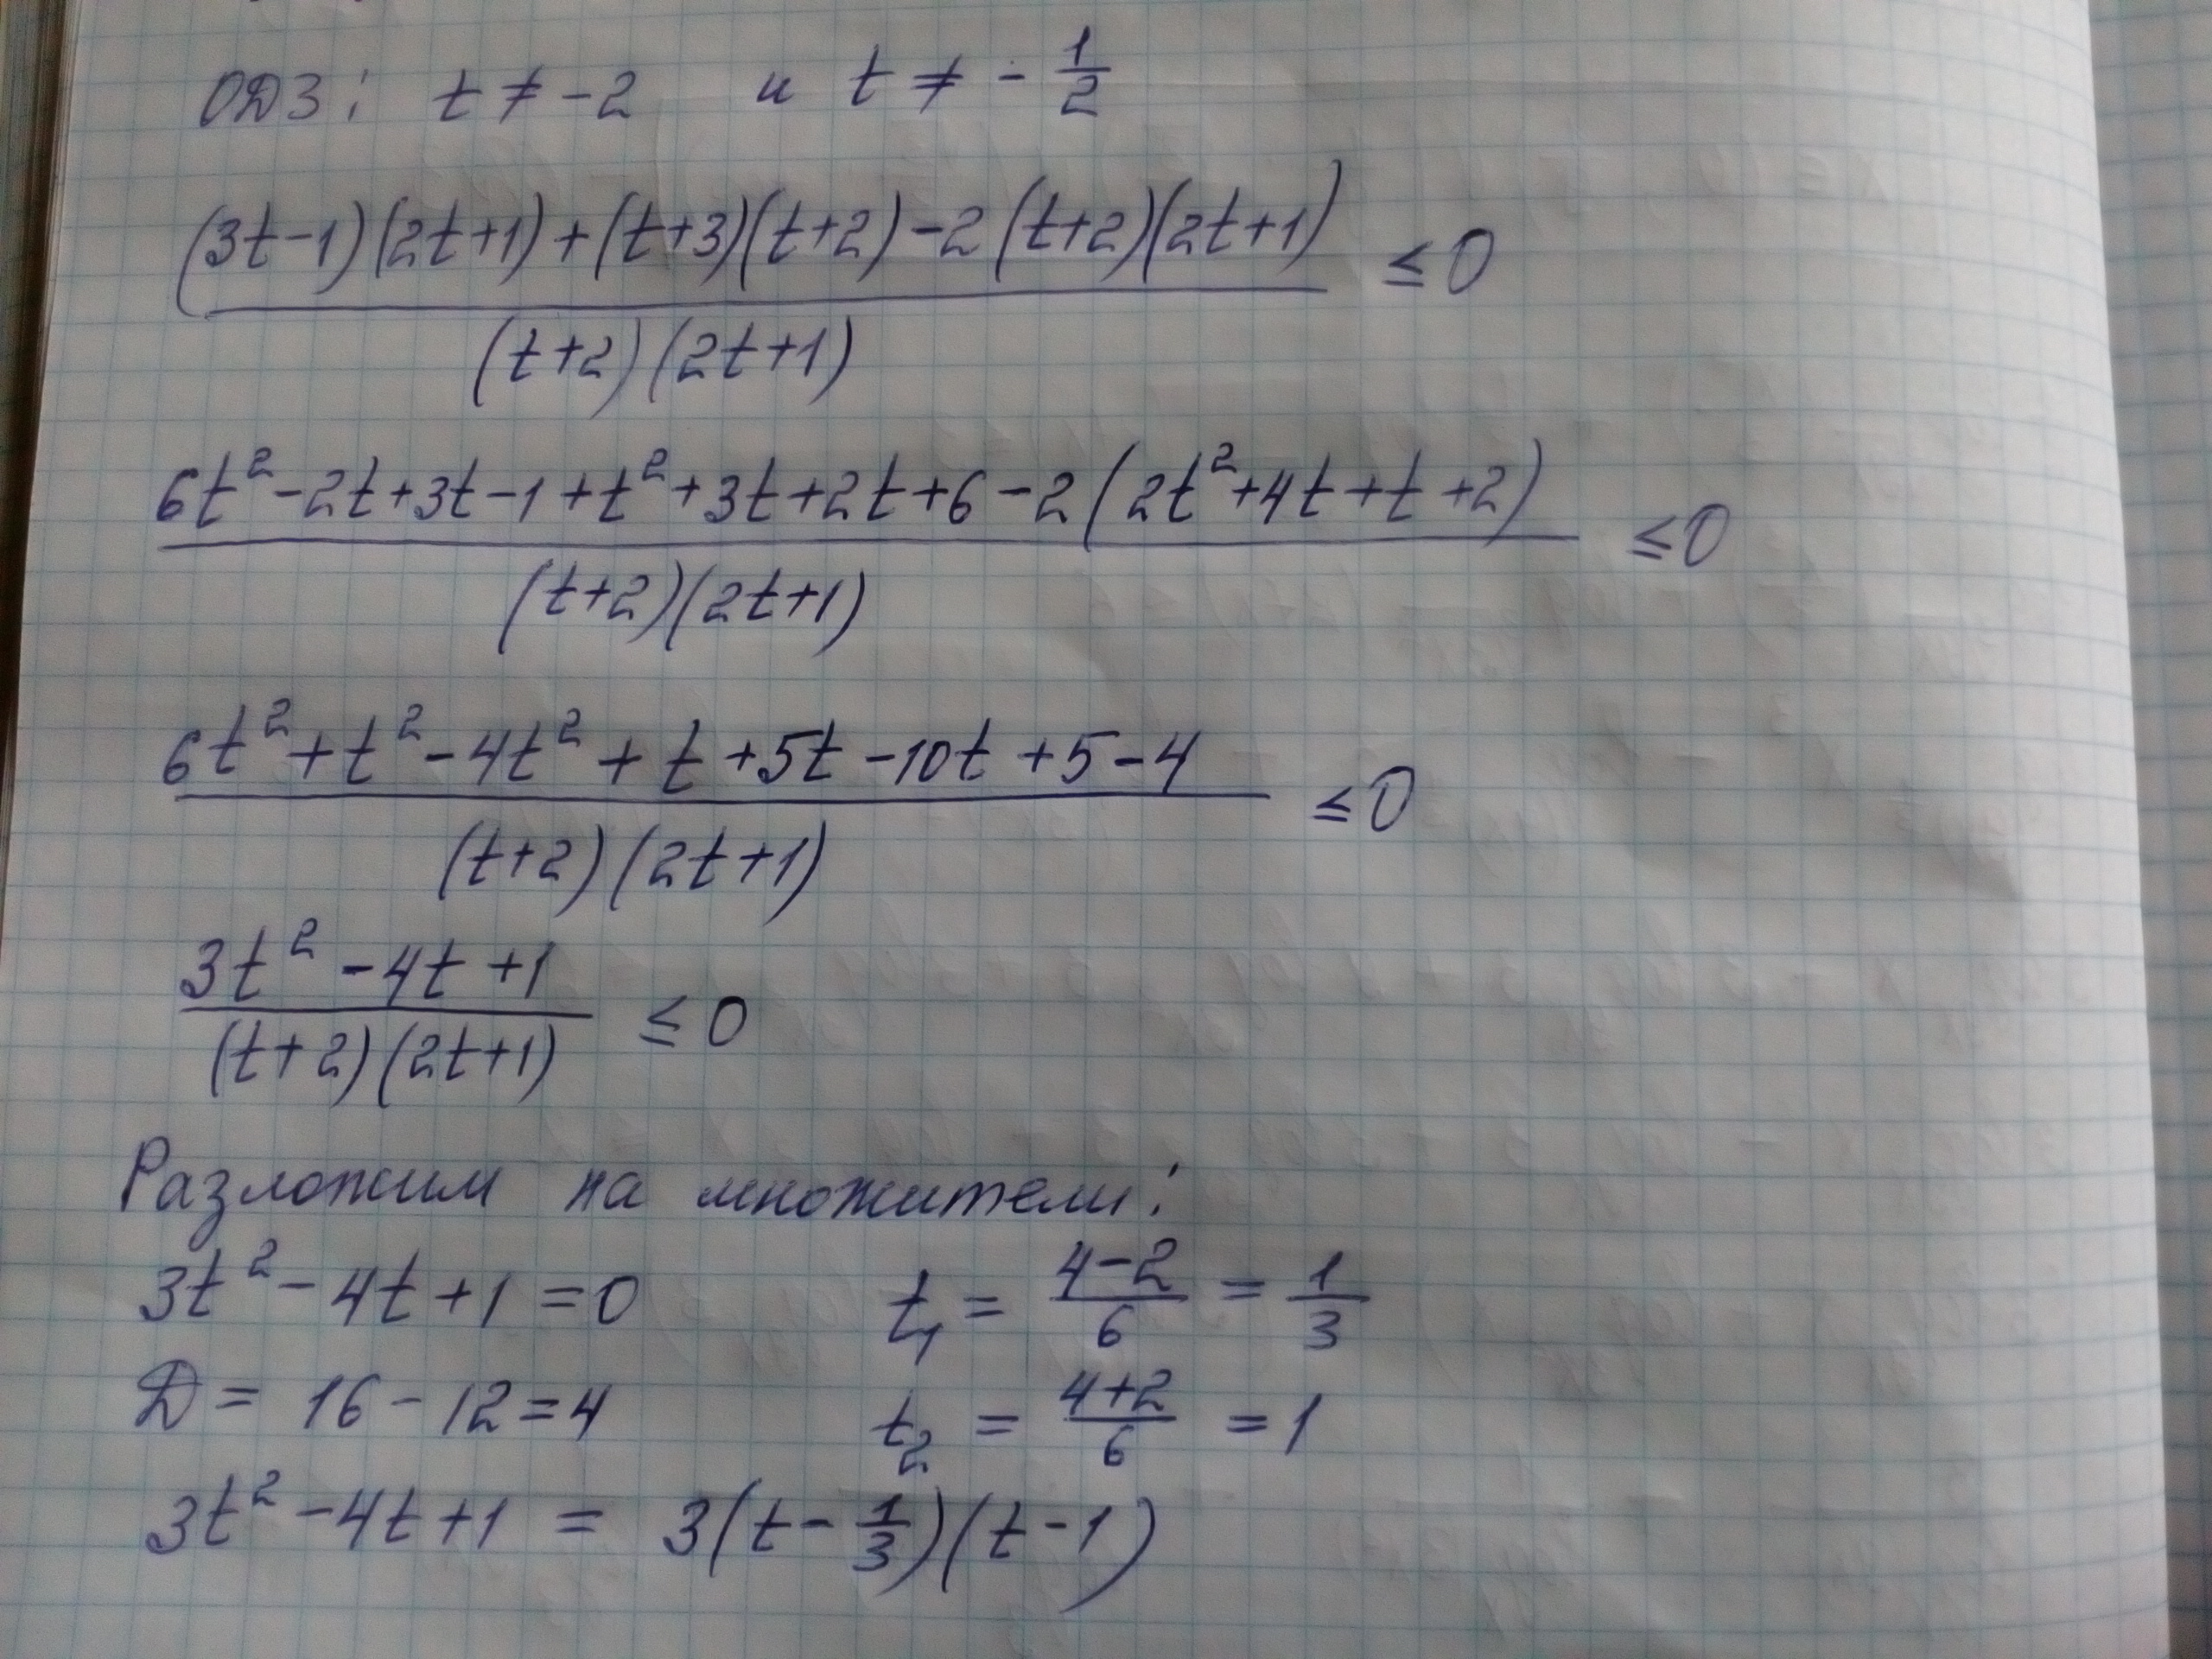 ОДЗ: t ≠ -2 и t ≠ - 1/2
((3t-1)(2t+1)+(t+3)(t+2)-2(t+2)(2t+1))/((t+2)(2t+1)) ≤ 0
(6t²-2t+3t-1+t²+3t+2t+6-2(2t²+4t+t+2))/((t+2)(2t+1)) ≤ 0
(6t²+t²-4t²+t+5t-10t+5-4)/((t+2)(2t+1)) ≤ 0
(3t²-4t+1)/((t+2)(2t+1)) ≤ 0
Разложим на множители:
3t²-4t+1=0 t₁ = (4-2)/6 = 1/3
Д = 16-12=4 t₂ = (4+2)/6 = 1
3t²-4t+1 = 3(t-1/3)(t-1)